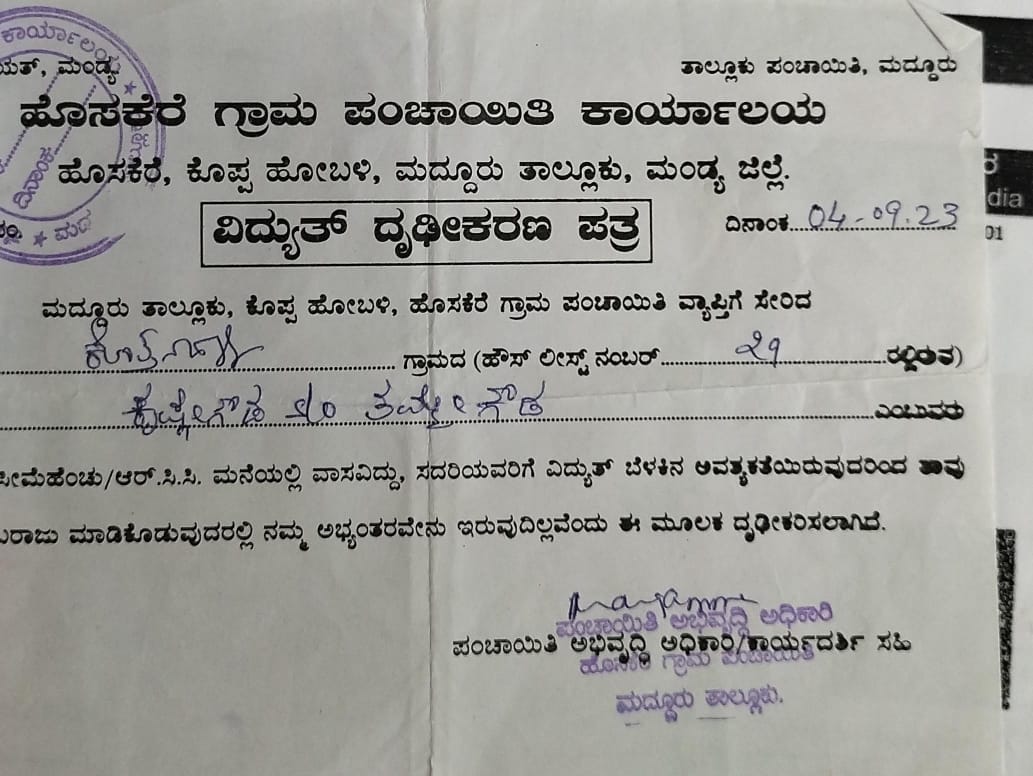 ಕಾರ್ಯಾಲಯ
ಮಂಡ್ಯ
ತಾಲ್ಲೂಕು ಪಂಚಾಯಿತಿ, ಮದ್ದೂರು
ಹೊಸಕೆರೆ ಗ್ರಾಮ ಪಂಚಾಯಿತಿ ಕಾರ್ಯಾಲಯ
ಹೊಸಕೆರೆ, ಕೊಪ್ಪ ಹೋಬಳಿ, ಮದ್ದೂರು ತಾಲ್ಲೂಕು, ಮಂಡ್ಯ ಜಿಲ್ಲೆ.
ದಿನಾಂಕ
ವಿದ್ಯುತ್ ದೃಢೀಕರಣ ಪತ್ರ
ದಿನಾಂಕ....04-09.23
dia
01
ಮದ್ದೂರು ತಾಲ್ಲೂಕು, ಕೊಪ್ಪ ಹೋಬಳಿ, ಹೊಸಕೆರೆ ಗ್ರಾಮ ಪಂಚಾಯಿತಿ ವ್ಯಾಪ್ತಿಗೆ ಸೇರಿದ
ಗ್ರಾಮದ (ಹೌಸ್ ಲೀಸ್ಟ್ ನಂಬರ್ ೨೪ ರಲ್ಲಿರುವ)
ಕೃಷ್ಣೇಗೌಡ ಬಿನ್ ತಮ್ಮೇಗೌಡ ಎಂಬುವರು
ಸೀಮೆಹೆಂಚು/ಆರ್.ಸಿ.ಸಿ. ಮನೆಯಲ್ಲಿ ವಾಸವಿದ್ದು, ಸದರಿಯವರಿಗೆ ವಿದ್ಯುತ್ ಬೆಳಕಿನ ಅವಶ್ಯಕತೆಯಿರುವುದರಿಂದ ತಾವು
ಮಾಡಿಕೊಡುವುದರಲ್ಲಿ ನಮ್ಮ ಅಭ್ಯಂತರವೇನು ಇರುವುದಿಲ್ಲವೆಂದು ಈ ಮೂಲಕ ದೃಢೀಕರಿಸಲಾಗಿದೆ.
ಪಂಚಾಯಿತಿ ಅಭಿವೃದ್ಧಿ ಅಧಿಕಾರಿ
ಪಂಚಾಯಿತಿ ಅಭಿವೃದ್ಧಿ ಅಧಿಕಾರಿ/ಕಾರ್ಯದರ್ಶಿ ಸಹಿ
ಹೊಸಕೆರೆ ಗ್ರಾಮ ಪಂಚಾಯಿತಿ
ಮದ್ದೂರು ತಾಲ್ಲೂಕು.